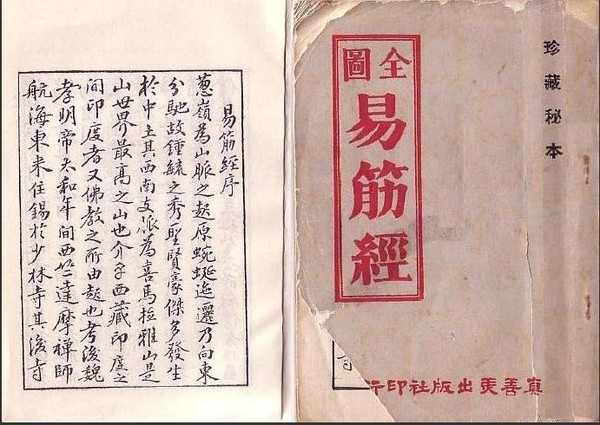 珍藏秘本
全圖
易筋經
真善美出版社印行
易筋經序
葱嶺為山脈之起原蜿蜒迤邐乃向東
分馳故鍾毓之秀聖賢豪傑多發生
於中土其西南支派為喜馬拉雅山是
山世界最高之山也介乎西藏印度之
間印度者又佛教之所由起也考後魏
孝明帝太和年間西竺達摩禪師
航海東來住錫於少林寺其後寺